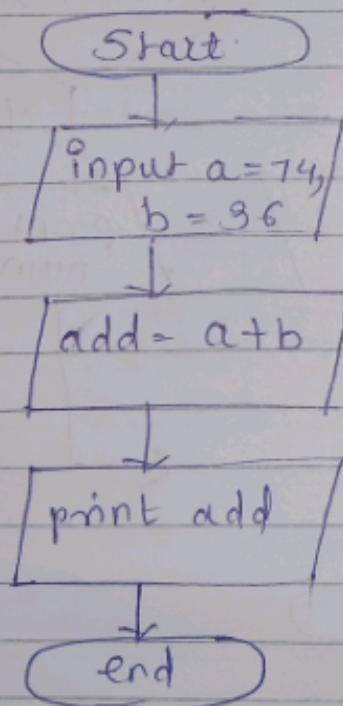 Start
input a = 74,
b = 36
add = a+b
print add
end